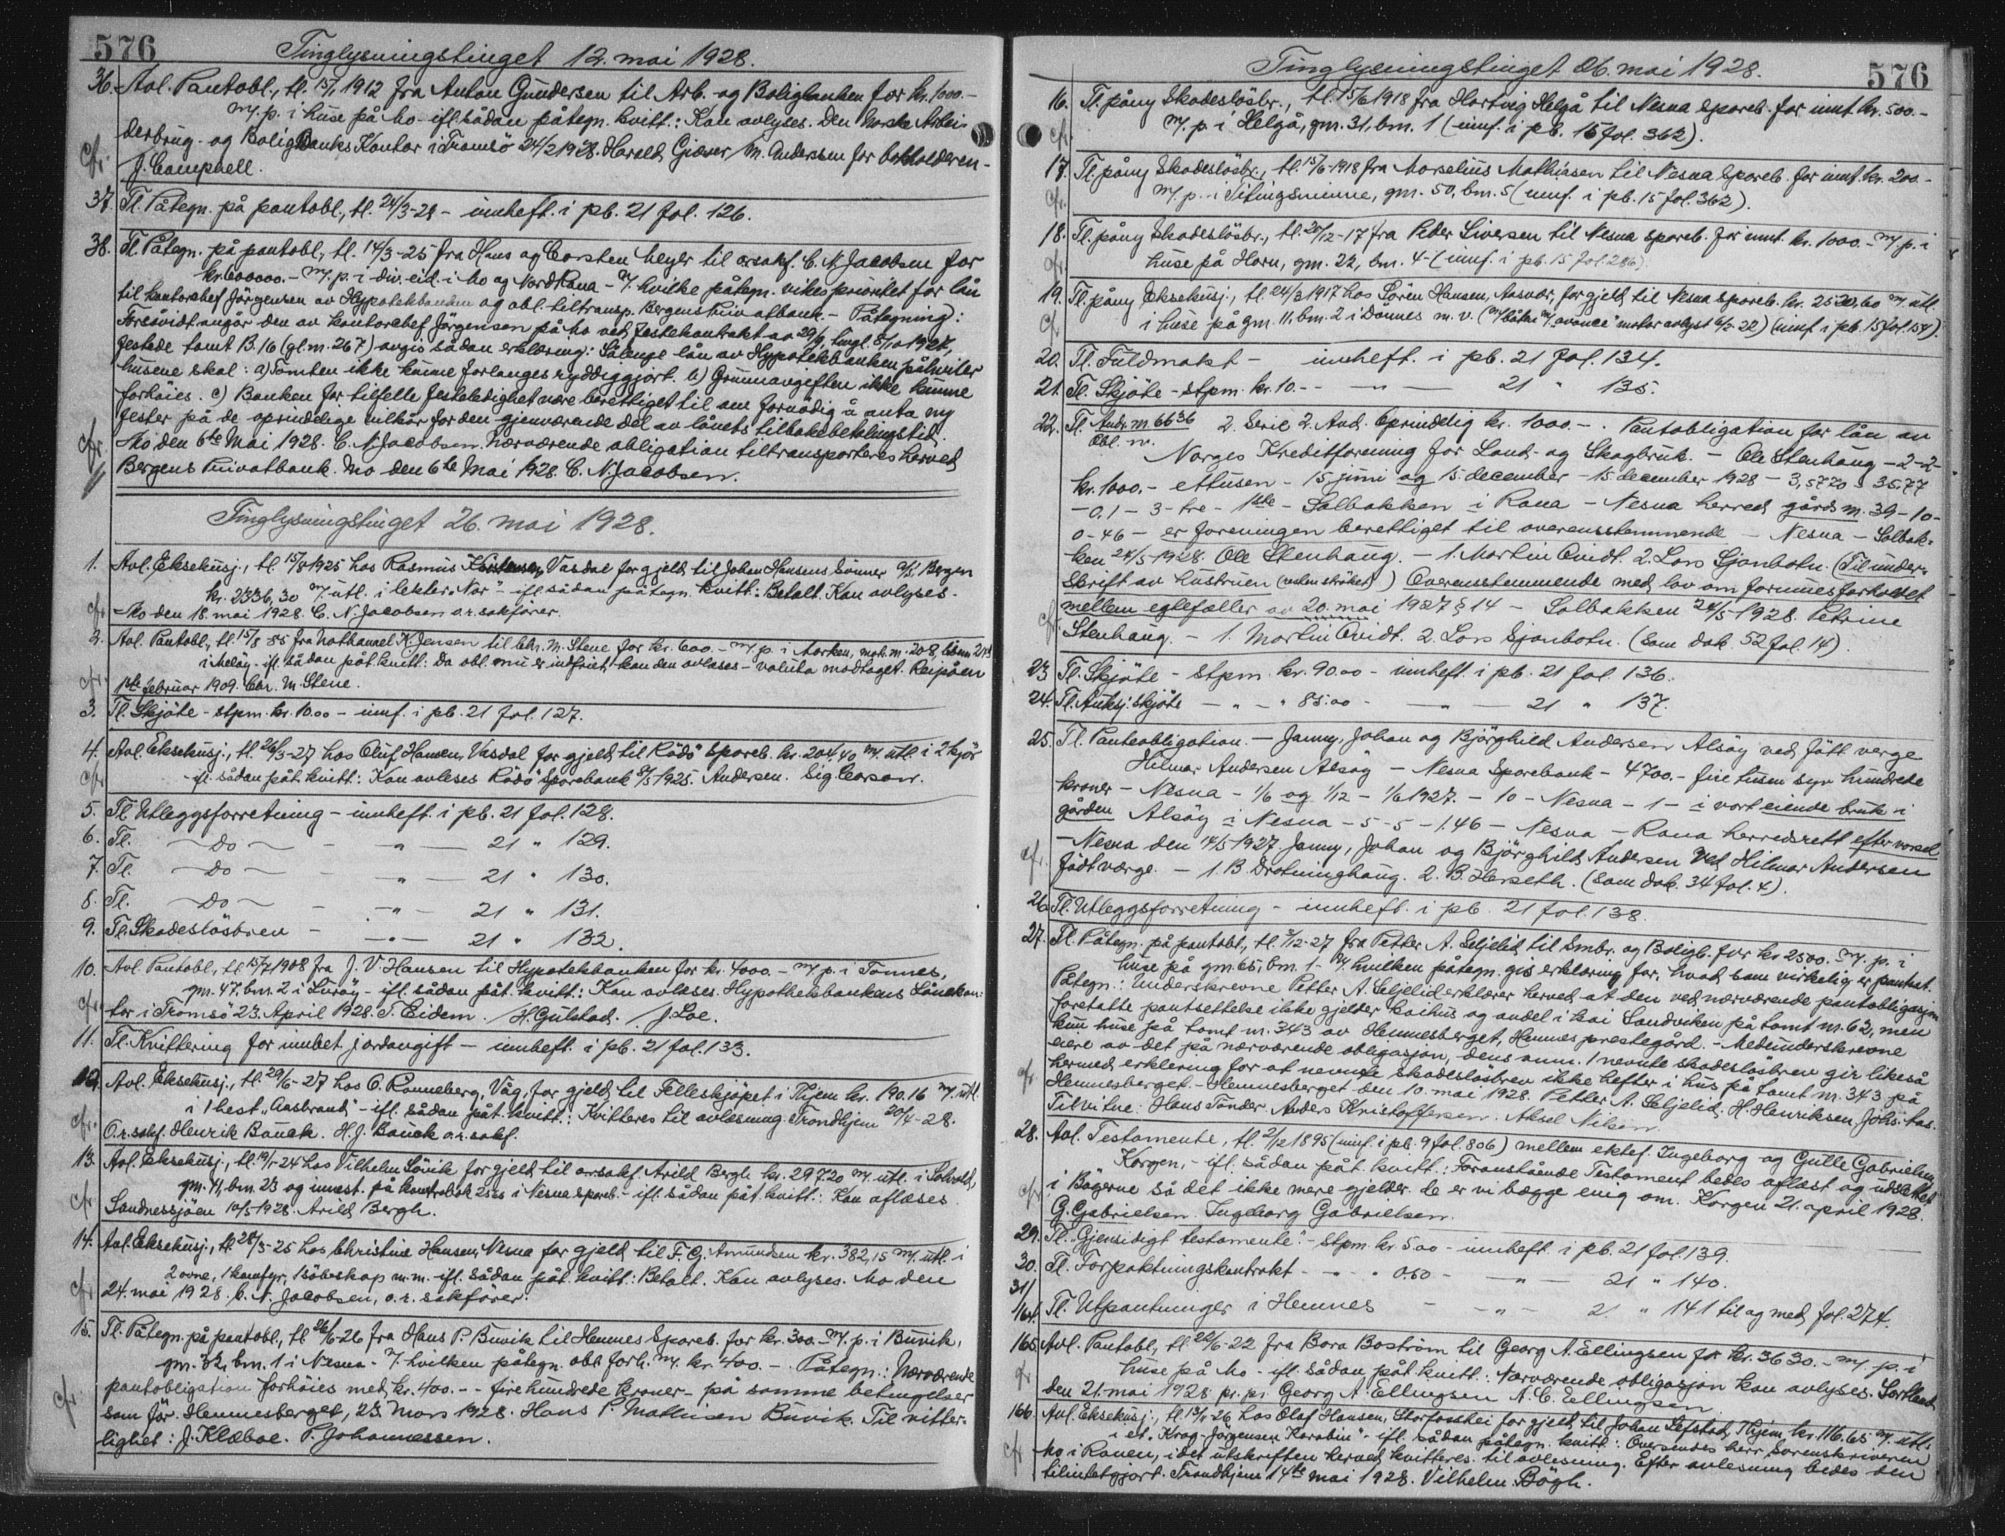 576
Tinglysningstinget 12. mai 1928.
36. Avl. Pantobl., tl. 15/1 1912 fra Anton Gundersen til Arb.- og Boligbanken for kr. 1000.-
m/ p. i huse på Mo - ifl. sådan påtegn. kvitt.: Kan avlyses. Den Norske Arbei-
derbrug- og Boligbanks Kontor i Tromsö 24/2 1928. Harald Giæver M. Anderssen for bokholderen-
cfr. J. Campbell.
37. Tl. Påtegn. på pantobl., tl. 24/3-28 - innheft. i pb. 21 fol. 126.
38. Tl. Påtegn. på pantobl., tl. 14/3-25 fra Hans og Carsten Meyer til orsakf. C. N. Jacobsen for
kr. 600000.- m/ p. i div. eid. i Mo og Nord Rana - v/ hvilke påtegn. vikes prioritet for lån
til kontorchef Jörgensen av Hypotekbanken og obl. tiltransp. Bergens Privatbank. - Påtegning:
Forsåvidt angår den av kontorchef Jörgensen på Mo ved festekontrakt av 29/9, tingl. 8/10 1927,
festede tomt B. 16 (gl. nr. 267) avgis sådan erklæring: Sålenge lån av Hypotekbanken påhviler
husene skal: a) Tomten ikke kunne forlanges ryddiggjort. b) Grunnavgiften ikke kunne
forhöies. c) Banken for tilfelle festeledighet være berettiget til om fornödig å anta ny
fester på de oprindelige vilkår for den gjenværende del av lånets tilbakebetalingstid.
cfr. Mo den 6te Mai 1928. C. N. Jacobsen. Nærværende obligation tiltransporteres herved
Bergens Privatbank. Mo den 6te Mai 1928. C. N. Jacobsen.
Tinglysningstinget 26. mai 1928.
1. Avl. Eksekusj., tl. 15/8 1925 hos Rasmus Karstensen, Vasdal for gjeld til Johan Hansens Sönner A/S. Bergen
kr. 2336,30 m/ utl. i lekter "Nor" - ifl. sådan påtegn. kvitt.: Betalt. Kan avlyses.
cfr. Mo den 18. mai 1928. C. N. Jacobsen o.r. sakförer.
2. Avl. Pantobl., tl. 15/8 85 fra Nathanael K. Jensen til Chr. M. Stene for kr. 600.- m/ p. i Aorken, matr. nr. 208,
i Melöy - ifl. sådan påt. kvitt.: Da obl. nu er indfriet, kan den avleses - valuta modtaget. Reipåen
cfr. 1ste februar 1909. Chr. M. Stene.
3. Tl. Skjöte - stpm. kr. 10.00 - innf. i pb. 21 fol. 127.
4. Avl. Eksekusj., tl. 26/3-27 hos Oluf Hansen, Vasdal for gjeld til Rödö Spareb. kr. 204,40 m/ utl. i 2 kjör
cfr. - ifl. sådan påt. kvitt.: Kan avleses Rödö Sparebank 9/5 1925. Andersen. Sig Carson.
5. Tl. Utleggsforretning - innheft. i pb. 21 fol. 128.
6. Tl. - Do - - " - 21 " 129.
7. Tl. - Do - - " - 21 " 130.
8. Tl. - Do - - " - 21 " 131.
9. Tl. Skadeslösbrev - - " - 21 " 132.
10. Avl. Pantobl., tl. 15/7 1908 fra J. V. Hansen til Hypotekbanken for kr. 4000.- m/ p. i Tonnes,
gnr. 47, bnr. 2 i Luröy - ifl. sådan påt. kvitt.: Kan avleses. Hypothekbankens Lånekon-
cfr. tor i Tromsö 23. April 1928. S. Eidem. / H. Gulstad. / J. Loe.
11. Tl. Kvittering for innbet. jordavgift - innheft. i pb. 21 fol. 133.
12. Avl. Eksekusj., tl. 29/6-27 hos O. Ronneberg, Våg, for gjeld til Felleskjöpet i Thjem kr. 190.16 m/ utl.
i 1 hest "Aasbrand" - ifl. sådan påt. kvitt.: Kvitteres til avlæsning Trondhjem 20/4-28.
cfr. O.r. sakf. Henrik Bauck. H. J. Bauck o.r. sakf.
13. Avl. Eksekusj., tl. 19/1-24 hos Vilhelm Lövik for gjeld til orsakf. Arild Bergh kr. 297.20 m/ utl. i Solvold,
gnr. 41, bnr. 23 og innest. på kontrabok i Nesna spareb. - ifl. sådan påt. kvitt.: Kan afleses.
cfr. Sandnessjöen 10/5 1928. Arild Bergh.
14. Avl. Eksekusj., tl. 28/3-25 hos Christine Hansen, Nesna for gjeld til F. G. Amundsen kr. 382,15 m/ utl. i
2 ovne, 1 komfyr, 1 söbeskap m.m. - ifl. sådan påt. kvitt.: Betalt. Kan avlyses. Mo den
cfr. 24. mai 1928. C. N. Jacobsen, o.r. sakförer.
15. Tl. Påtegn. på pantobl., tl. 26/6-26 fra Hans P. Buvik til Hemnes Spareb. for kr. 300.- m/ p. i Buvik,
gnr. 52, bnr. 1 i Nesna - v/ hvilken påtegn. obl. forh. m/ kr. 400.-. Påtegn.: Nærværende
pantobligation forhöies med kr. 400.- - fire hundrede kroner - på samme betingelser
cfr. som för. Hemnesberget, 23. Mars 1928. Hans P. Mathisen Buvik. Til vitter-
lighet: J. Klæboe. P. Johannessen.
Tinglysningstinget 26. mai 1928.
576
16. Tl. påny Skadeslösbr., tl. 15/6 1918 fra Hartvig Helgå til Nesna spareb. for innt. kr. 500.-
cfr. m/ p. i Helgå, gnr. 31, bnr. 1 (innf. i pb. 15 fol. 362).
17. Tl. påny Skadeslösbr., tl. 15/6-1918 fra Marselius Mathiasen til Nesna Spareb. for innt. kr. 200.-
cfr. m/ p. i Titingsminne, gnr. 50, bnr. 5 (innf. i pb. 15 fol. 362).
18. Tl. påny Skadeslösbr., tl. 20/12-17 fra Peder Siversen til Nesna spareb. for innt. kr. 1000.- m/ p. i
cfr. huse på Horn, gnr. 22, bnr. 4 - (innf. i pb. 15 fol. 286).
19. Tl. påny Eksekusj., tl. 24/3 1917 hos Sören Hansen, Aasvær, for gjeld til Nesna spareb. kr. 2530.60 m/ utl.
cfr. i huse på gnr. 11, bnr. 2 i Dönnes m. v. (m/ båten m/ "avance" motor avlyst 6/2-22) (innf. i pb. 15 fol. 154).
20. Tl. Fuldmakt - innheft. i pb. 21 fol. 134.
21. Tl. Skjöte - stpm. kr. 10.- - " - 21 " 135.
22. Tl. Andr. nr. 6636 2. Serie 2. Avd. Oprindelig kr. 1000.-. Pantobligation for lån av
Obl. nr.
Norges Kreditforening for Land- og Skogbruk. - Ole Stenhaug - 2-2-
kr. 1000.- ettusen - 15. juni og 15. december - 15. december 1928 - 3,577% - 35.77
- 0.1 - 3 - tre - 1ste - Solbakken i Rana - Nesna herred gårds nr. 39-10-
0-46 - er foreningen berettiget til overensstemmende - Nesna - Solbak-
ken 24/5-1928. Ole Stenhaug. - 1. Martin Qvidt. 2. Lars Sjonbotn. (Til under-
skrift av hustruen (value ströket)) Overensstemmende med lov om formuesforholdet
mellem egtefæller av 20. mai 1927 § 14 - Solbakken 24/5-1928. Petrine
cfr. Stenhaug - 1. Martin Qvidt. 2. Lars Sjonbotn. (Som dok. 52 fol. 14).
23. Tl. Skjöte - stpm. kr. 90.00 - innheft. i pb. 21 fol. 136.
24. Tl. Auksj. skjöte - " - " 85.00 - - " - 21 " 137.
25. Tl. Panteobligation. - Janny, Johan og Bjørghild Andersen Alsöy ved födt verge
Hilmar Andersen Alsöy - Nesna Sparebank - 4700.- fire tusen syv hundrede
kroner - Nesna - 1/6 og 1/12 - 1/6 1927. - 10 - Nesna - 1 - i vort eiende bruk i
gården Alsöy i Nesna - 5-5 - 1.46 - Nesna - Rana herredsrett efter varsel
- Nesna den 14/5 1927. Janny, Johan og Bjørghild Andersen ved Hilmar Andersen
cfr. födt værge. - 1. B. Drotninghaug. 2. B. Herseth. (Som dok. 34 fol. 4).
26. Tl. Utleggsforretning - innheft. i pb. 21 fol. 138.
27. Tl. Påtegn. på pantobl., tl. 3/12-27 fra Petter A. Seljelid til Smbr. og Boligb. for kr. 2500.- m/ p. i
huse på gnr. 65, bnr. 1 - v/ hvilken påtegn. gis erklæring for, hvad som virkelig er pantsat.
Påtegn.: Underskrevne Petter A. Seljelid erklærer herved at den ved nærværende pantobligasjon
foretatte pantsettelse ikke gjelder kaihus og andel i kai Sandviken på tomt nr. 62, men
kun huse på tomt nr. 343 av Hemnesberget, Hemnes prestegård. - Medunderskrevne
eiere av det på nærværende obligasjon, dens anm. 1 nevnte skadeslösbrev gir likeså
hermed erklæring for at nevnte skadeslösbrev ikke hefter i hus på tomt nr. 343 på
cfr. Hemnesberget. - Hemnesberget den 10. mai 1928. Petter A. Seljelid. H. Henriksen, Johs. has.
Til vitne: Hans Tönder. Anders Kristoffersen. Aksel Nilsen.
28. Avl. Testamente, tl. 2/12 1895 (innf. i pb. 9 fol. 806) mellem ektef. Ingeborg og Gulle Gabrielsen,
Korgen, - ifl. sådan påt. kvitt.: Foranstående Testament bedes aflest og udslettet
cfr. i Bögerne så det ikke mere gjelder. De er vi begge enig om. Korgen 21. april 1928.
G. Gabrielsen. Ingeborg Gabrielsen.
29. Tl. "Gjensidigt testamente" - stpm. kr. 5.00 - innheft. i pb. 21 fol. 139.
30. Tl. Forpaktningskontrakt - " " 0.50 - - " - 21 " 140.
31/164. Tl. Utpantninger i Hemnes - - " - 21 " 141 til og med fol. 274.
165. Avl. Pantobl., tl. 22/6-22 fra Bora Boström til Georg A. Ellingsen for kr. 3630.- m/ p. i
cfr. huse på Mo - ifl. sådan påt. kvitt.: Nærværende obligasjon kan avlyses. Sortland
den 21. mai 1928 pr. pr. Georg A. Ellingsen A. C. Ellingsen.
166. Avl. Eksekusj., tl. 13/1-26 hos Olaf Hansen, Storfosshei for gjeld til Johan Sefstad, Thjem, kr. 116.65 m/ utl.
i et "Krag-Jörgensen Karabin" - ifl. sådan påtegn. kvitt.: Oversendes herr Sorenskriveren
cfr. Mo i Ranen, idet utskriften herved kvitteres til avlesning. Efter avlesning bedes den
tilintetgjort. Trondhjem 14de mai 1928. Vilhelm Bögh.